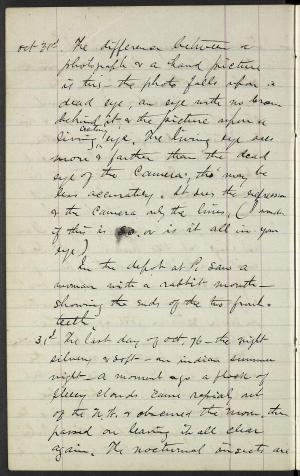 Oct 31st. The difference between a
photograph & a hand picture
is this - the photo falls upon a
dead eye, an eye with no brain
behind it & the picture upon a
living eye. The living eye sees
more & farther than the dead
eye of the Camera, tho' may be
less accurately. It sees the expression
& the Camera only the lines. (I wonder
if this is so, or is it all in your
eye)
In the depot at P. Saw a
woman with a rabbit mouth -
showing the ends of the two front
teeth.
31st The last day of Oct, 76 - the night
silvery & soft - an indian summer
night - A moment ago a flock of
fleecy clouds came rapidly out
of the N. & obscured the moon, then
passed on leaving it all clear
again. The nocturnal insects are